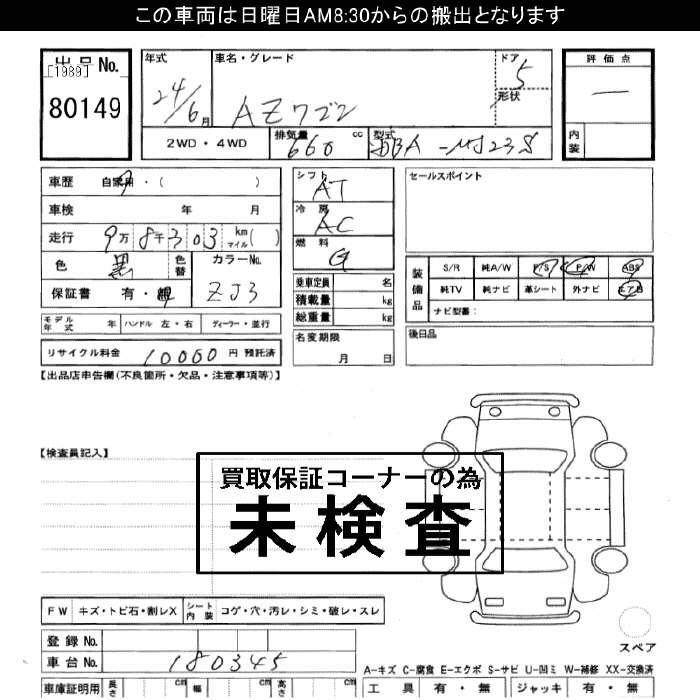 この車両は日曜日AM8:30からの搬出となります
出品No.
[1989]
80149
年式
24/6月
車名・グレード
AZワゴン
ドア
5
形状
評価点
―
内装
2WD・4WD
排気量
660 cc
型式
DBA-MJ23S
車歴 自家用・( )
車検 年 月
走行 9万8千303 km マイル( )
色 黒 色替
カラーNo.
ZJ3
保証書 有・無
モデル年式 年 ハンドル 左・右 ディーラー・並行
リサイクル料金 10000 円 預託済
シフト
AT
冷房
AC
燃料
G
乗車定員 名
積載量 kg
総重量 kg
名変期限
月 日
セールスポイント
装備品
S/R 純A/W P/S P/W ABS
純TV 純ナビ 革シート 外ナビ エアB
ナビ型番:
後日品
【出品店申告欄(不良箇所・欠品・注意事項等)】
【検査員記入】
買取保証コーナーの為
未検査
FW キズ・トビ石・割レX シート内装 コゲ・穴・汚レ・シミ・破レ・スレ
登録No.
車台No. 180345
車庫証明用 長さ cm 幅 cm 高さ cm
スペア
A-キズ C-腐食 E-エクボ S-サビ U-凹ミ W-補修 XX-交換済
工具 有・無 ジャッキ 有・無